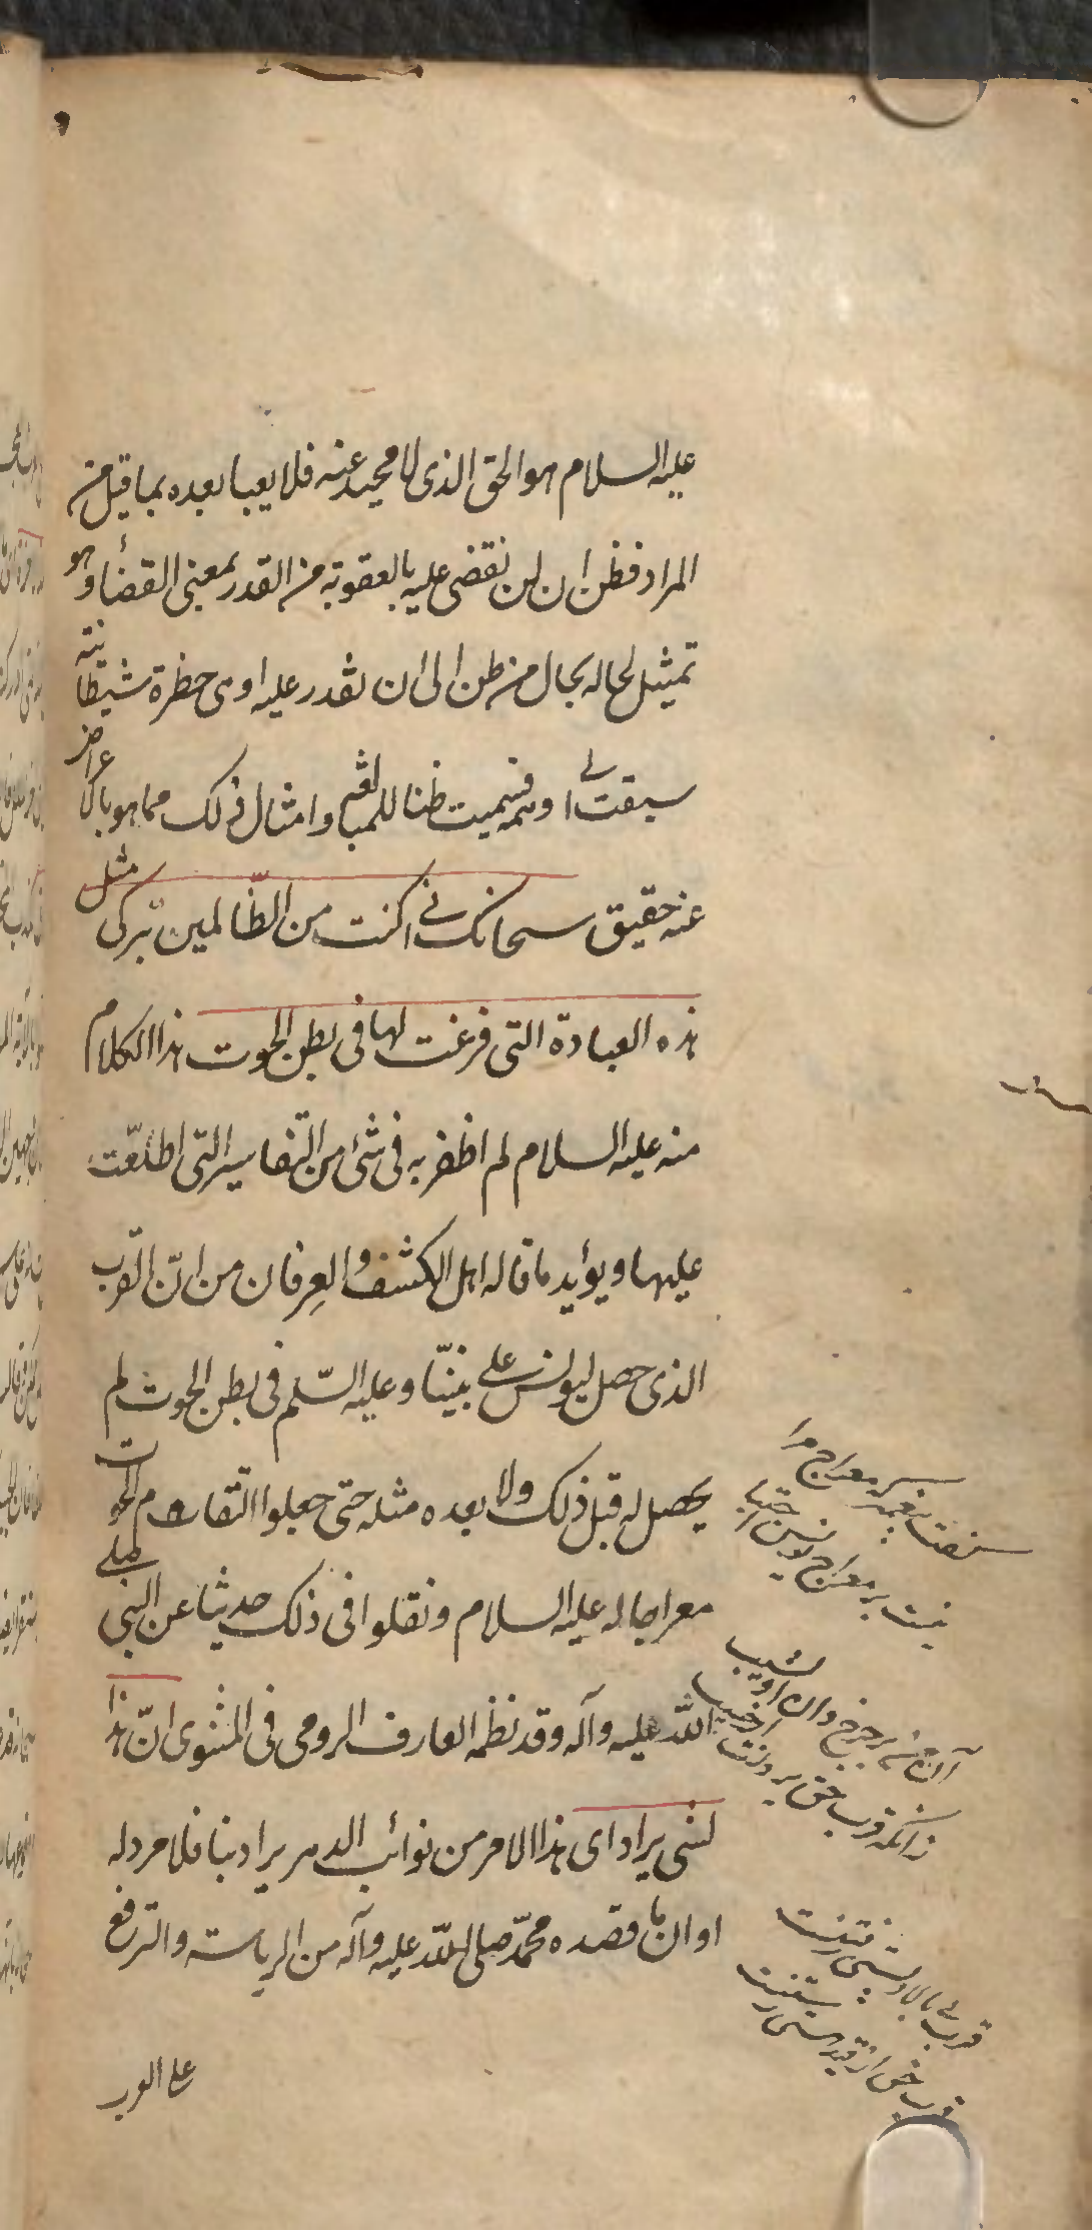 عليه السلام هو الحق الذى لا محيد عنه فلا يعبا بعده بما قيل من
المراد فظن ان لن نقضى عليه بالعقوبة من القدر بمعنى القضاء وهو
تمثيل لحاله بحال من ظن الى ان نقدر عليه او هى خطرة شيطانية
سبقت الى وهمه فسميت ظنا للمبالغة وامثال ذلك مما هو بالاعراض
عنه حقيق سبحانك انى كنت من الظّالمين بتركى مثل
هذه العبادة التى فرغت لها فى بطن الحوت هذا الكلام
منه عليه السلام لم اظفر به فى شئ من التفاسير التى اطلعت
عليها ويؤيد ما قاله اهل الكشف والعِرفان من انّ القرب
الذى حصل ليونس على نبيّنا وعليه السّلم فى بطن الحوت لم
يحصل له قبل ذلك ولا بعده مثله حتى جعلوا التقام الحوت
معراجا له عليه السلام ونقلوا فى ذلك حديثا عن النبى صلى
الله عليه وآله وقد نظمه العارف الرومى فى المثنوى انّ هذا
لشئ يراد اى هذا الامر من نوائب الدهر يراد بنا فلا مرد له
او ان ما قصده محمّد صلى الله عليه وآله من الرياسة والترفع
على العرب
گفت پيغمبر كه معراج مرا
نيست بر معراج يونس اجتبا
آن من بر چرخ وان او نشيب
زانكه قرب حق برونست از حسيب
قرب نى بالا و پستى رفتنست
قرب حق از قيد هستى رستنست